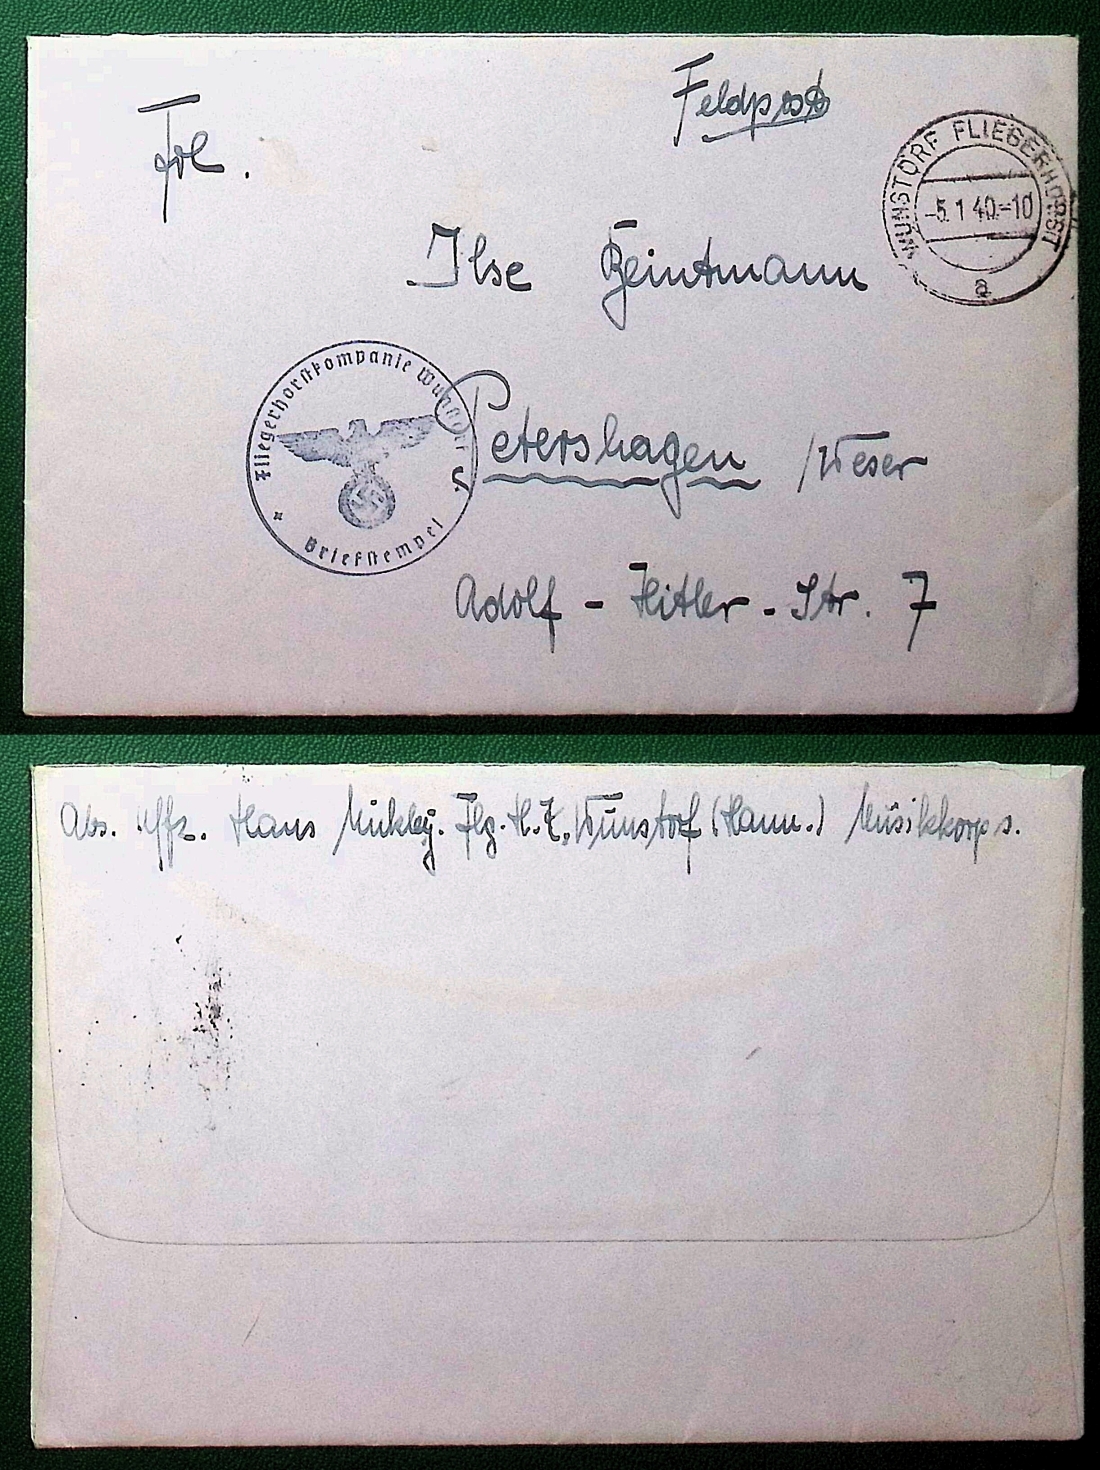 Feldpost
Frl.
WUNSTORF FLIEGERHORST
-5.1.40.-10
a
Ilse Beintmann
Fliegerhorstkompanie Wunstorf
Briefstempel
Petershagen /Weser
Adolf-Hitler-Str. 7
Abs. Uffz. Hans Flg.H.K. Wunstorf (Hann.) Musikkorps.